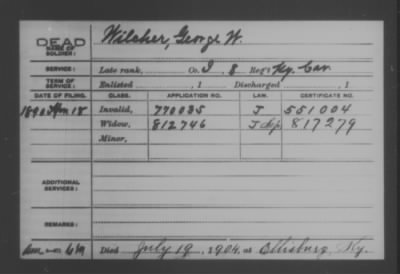 DEAD Wilcher, George W.
NAME OF SOLDIER:
SERVICE: Late rank, Co. I, 8 Reg't Ky. Cav.
TERM OF SERVICE: Enlisted , 1 Discharged , 1
DATE OF FILING. CLASS. APPLICATION NO. LAW. CERTIFICATE NO.
1890 18 Invalid, 770035 J 551004
Widow, 812746 J 817279
Minor,
ADDITIONAL SERVICES:
REMARKS:
Died July 19, 1904, at Ky.